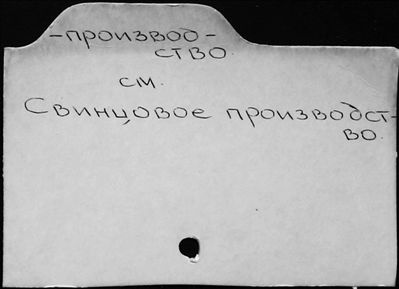 -производ-
ство.
см.
Свинцовое производст-
во.